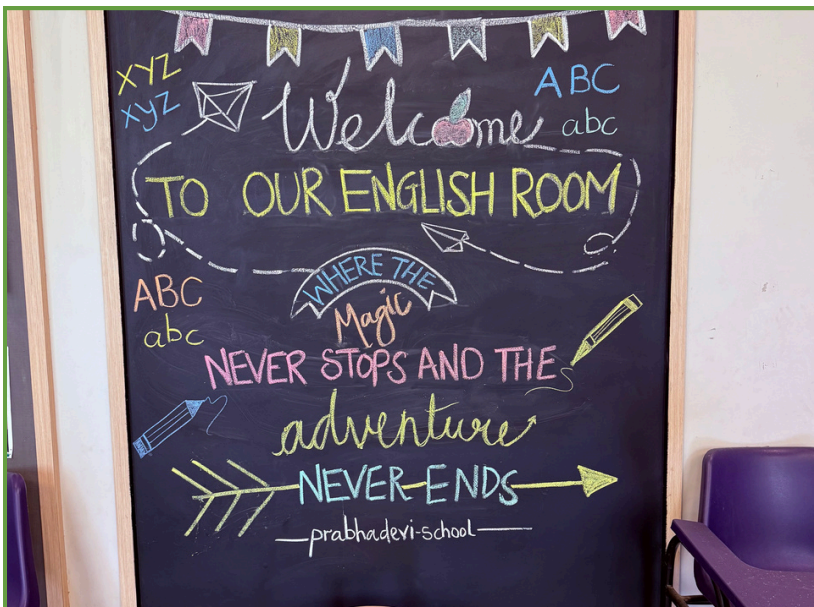 XYZ
xyz
ABC
abc
Welcome
TO OUR ENGLISH ROOM
WHERE THE
ABC
abc
Magic
NEVER STOPS AND THE
adventure
NEVER ENDS
prabhadevi-school